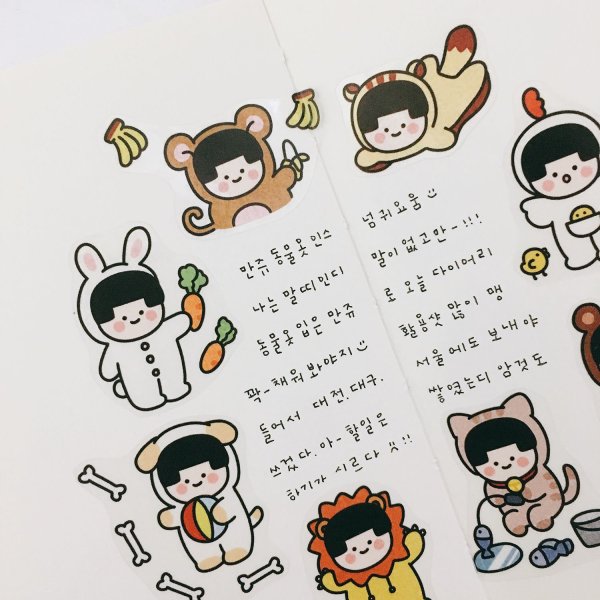 만쥬 동물옷 인스 넘 귀요움
나는 말띠인디 말이 없고만-!!!
동물옷 입은 만쥬로 오늘 다이어리
꽉- 채워 봐야지 활용샷 많이 맹
들어서 대전.대구.서울에도 보내야
쓰겠다. 아- 할일은 쌓였는디 암것도
하기가 시르다